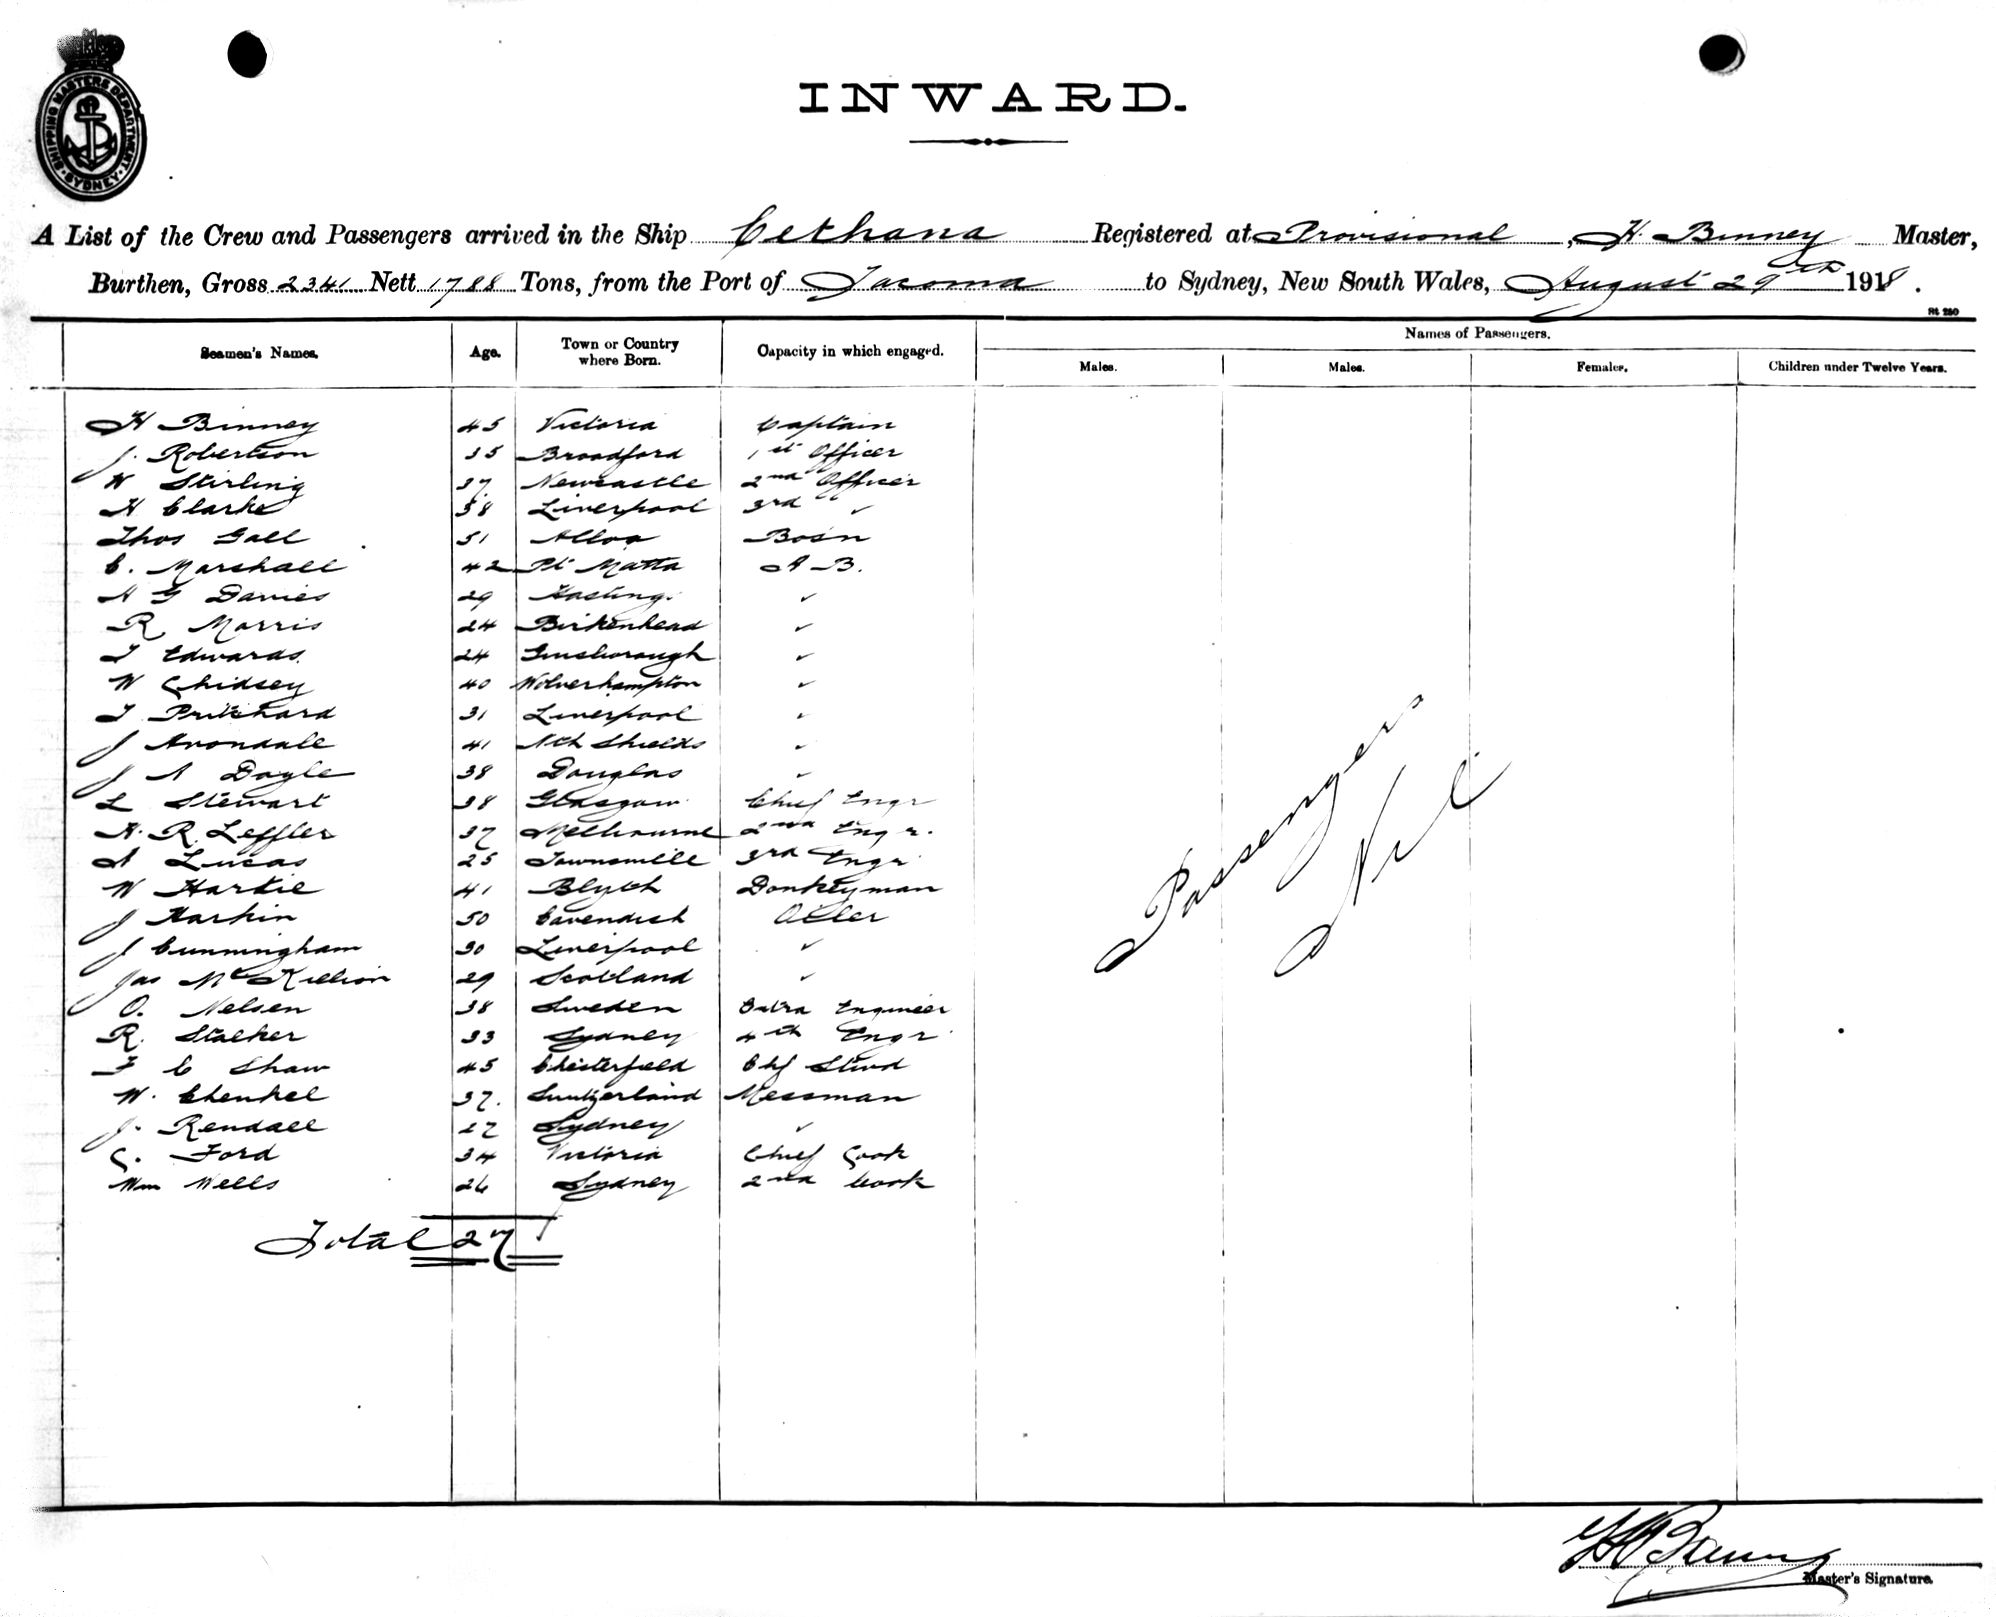 SHIPPING MASTERS DEPARTMENT · SYDNEY ·
INWARD.
A List of the Crew and Passengers arrived in the Ship Cethana Registered at Provisional, H. Binney Master,
Burthen, Gross 2341 Nett 1788 Tons, from the Port of Tacoma to Sydney, New South Wales, August 29th 1918.
Rt 280
Seamen's Names. Age. Town or Country where Born. Capacity in which engaged. Names of Passengers.
Males. Males. Females. Children under Twelve Years.
H Binney 45 Victoria Captain
J. Robertson 35 Broadford 1st Officer
W Stirling 37. Newcastle 2nd Officer
H Clarke 38 Liverpool 3rd ✓
Thos Gall 51 Alloa Bosn
C. Marshall 42 Pt Matta A B.
H G Davies 29 Hasting. ✓
R Morris 24 Birkenhead ✓
T Edwards. 24 ✓
W Chidsey 40 Wolverhampton ✓
T Pritchard 31 Liverpool ✓
J Avondale 41 Nth Shields ✓
J A Doyle 38 Douglas ✓
L Stewart 38 Glasgow Chief Engr
H. R. Leffler 37 Melbourne 2nd Engr.
A Lucas 25 Townsville 3rd Engr
W Hardie 41 Blyth Donkeyman
J Harkin 50 Cavendish Oiler
J Cunningham 30 Liverpool ✓
Jas McKillion 29 Scotland ✓
O. Nelsen 38 Sweden Extra Engineer
R. Stalker 33 Sydney 4th Engr
F C Shaw 45 Chesterfield Chf Stwd
W. Chenkel 37. Switzerland Messman
J. Rendall 27 Sydney ✓
C. Ford 34 Victoria Chief Cook
Wm Wells 26 Sydney 2nd Cook
Total 27
Passengers
Nil
H Binney
Master's Signature